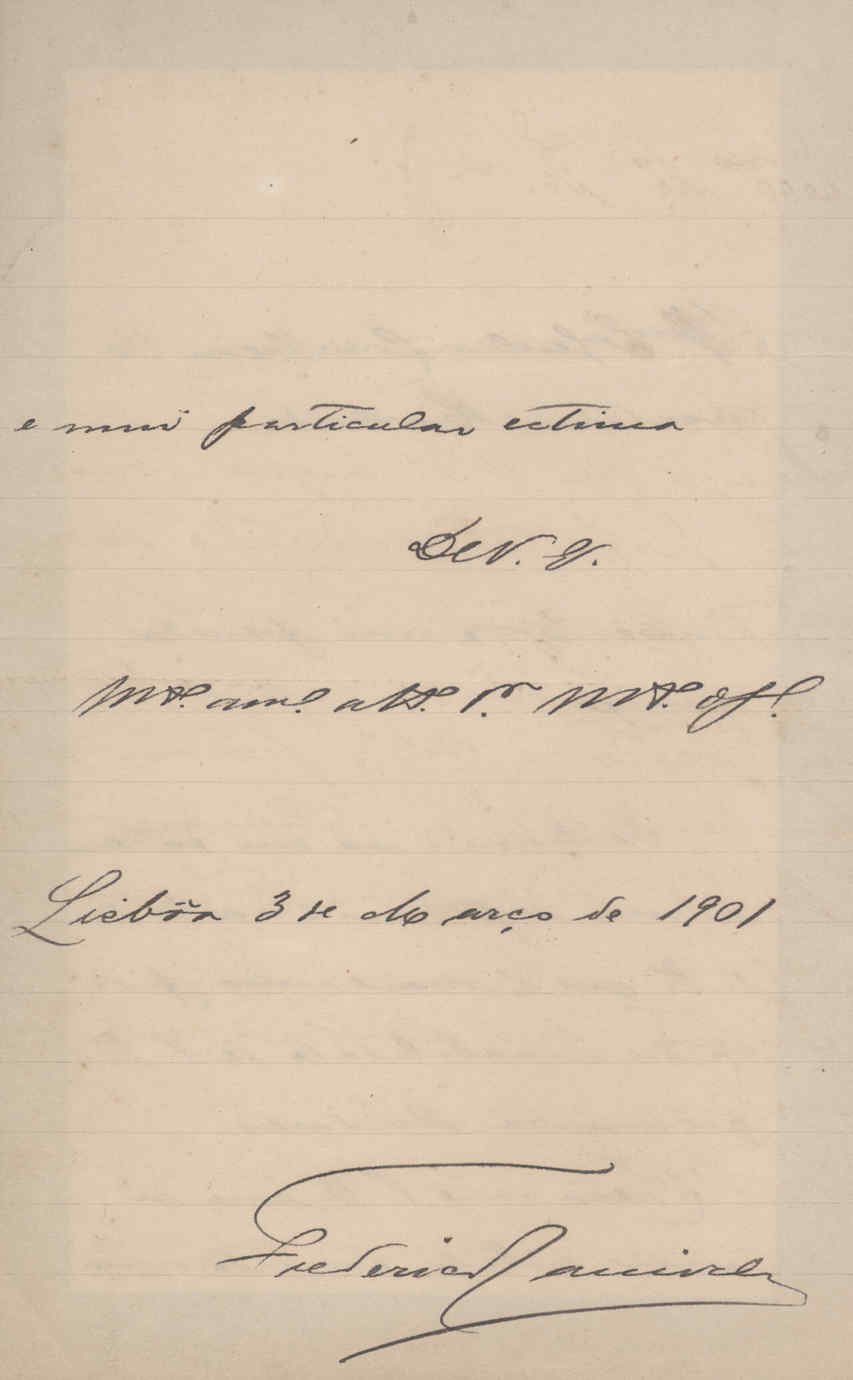 e mui particular estima
De V. E.
Mto. amo. atto. Vr. Mto. ofo.
Lisbôa 3 de Março de 1901
Frederico